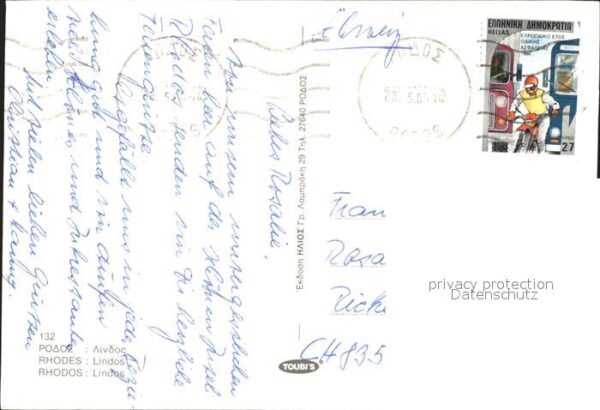 Liebe Rosalie,
Von unseren unvergesslichen
Ferien hier auf der schönen Insel
Rhodos senden wir Dir herzliche
Feriengrüsse.
Es gefällt uns in jeder Bezie-
hung gut und wir dürfen
viel Schönes und Interessantes
erleben.
Mit vielen lieben Grüssen
Christian + Fanny.
132
ΡΟΔΟΣ : Λίνδος
RHODES : Lindos
RHODOS : Lindos
Έκδοση ΗΛΙΟΣ Γρ. Λαμπράκη 29 Τηλ. 27640 ΡΟΔΟΣ
TOUBI'S
Schweiz
ΡΟΔΟΣ
ΕΛΛΗΝΙΚΗ ΔΗΜΟΚΡΑΤΙΑ
HELLAS
ΕΥΡΩΠΑΪΚΟ ΕΤΟΣ
ΟΔΙΚΗΣ
ΑΣΦΑΛΕΙΑΣ
1986
27
Frau
Rosa
Ricke
CH 835
privacy protection
Datenschutz